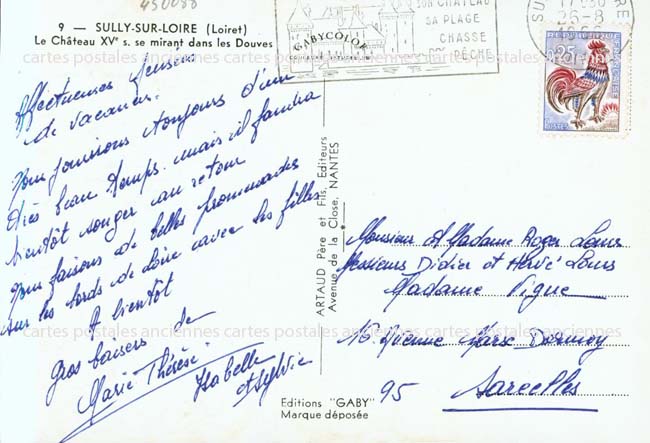 450088
9 — SULLY-SUR-LOIRE (Loiret)
Le Château XVᵉ s. se mirant dans les Douves
cartes postales anciennes cartes postales anciennes cartes postales anciennes
Affectueuses pensées
de vacances.
Nous jouissons toujours d'un
très beau temps mais il faudra
bientôt songer au retour
Nous faisons de belles promenades
sur les bords de Loire avec les filles
A bientôt
Gros baisers de
Marie Thérèse.
Isabelle
et Sylvie
GABYCOLOR
SON CHATEAU
SA PLAGE
CHASSE
PÊCHE
17H30
26-8
0,25
POSTES
FRANÇAISE
ARTAUD Père et Fils, Editeurs
Avenue de la Close, NANTES
Monsieur et Madame Roger Louis
Messieurs Didier et Hervé Louis
Madame Pigue
16 Avenue Marx Dormoy
95 Sarcelles
cartes postales anciennes cartes postales anciennes cartes postales anciennes
Editions "GABY"
Marque déposée